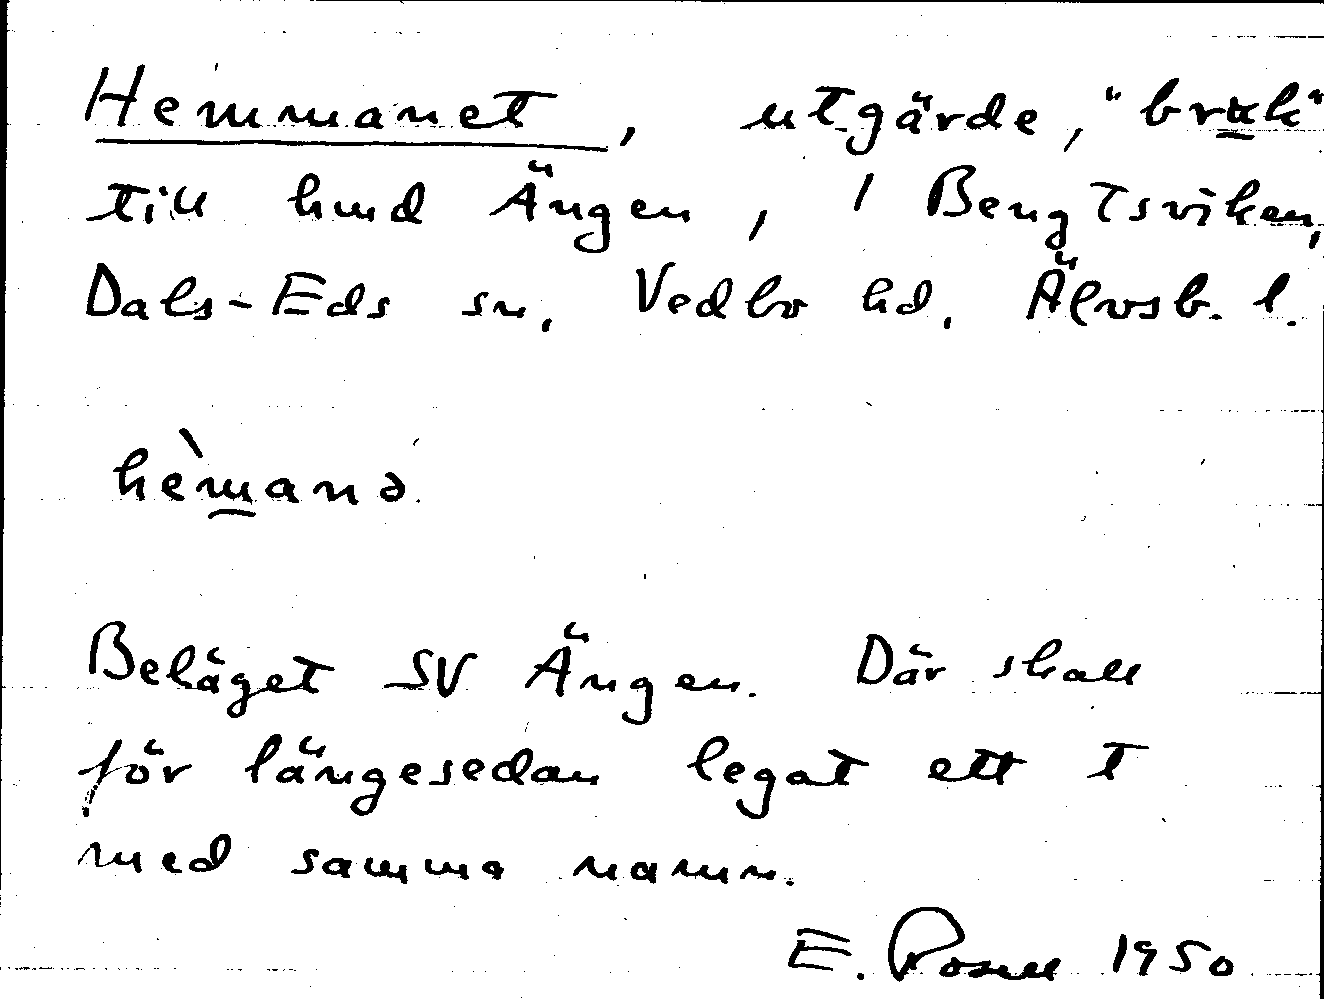 Hemmanet, utgärde, "bruk"
till hmd Ängen, 1 Bengtsviken,
Dals-Eds sn, Vedbo hd, Älvsb. l.
hèmanə.
Beläget SV Ängen. Där skall
för längesedan legat ett T
med samma namn.
E. Rosell 1950